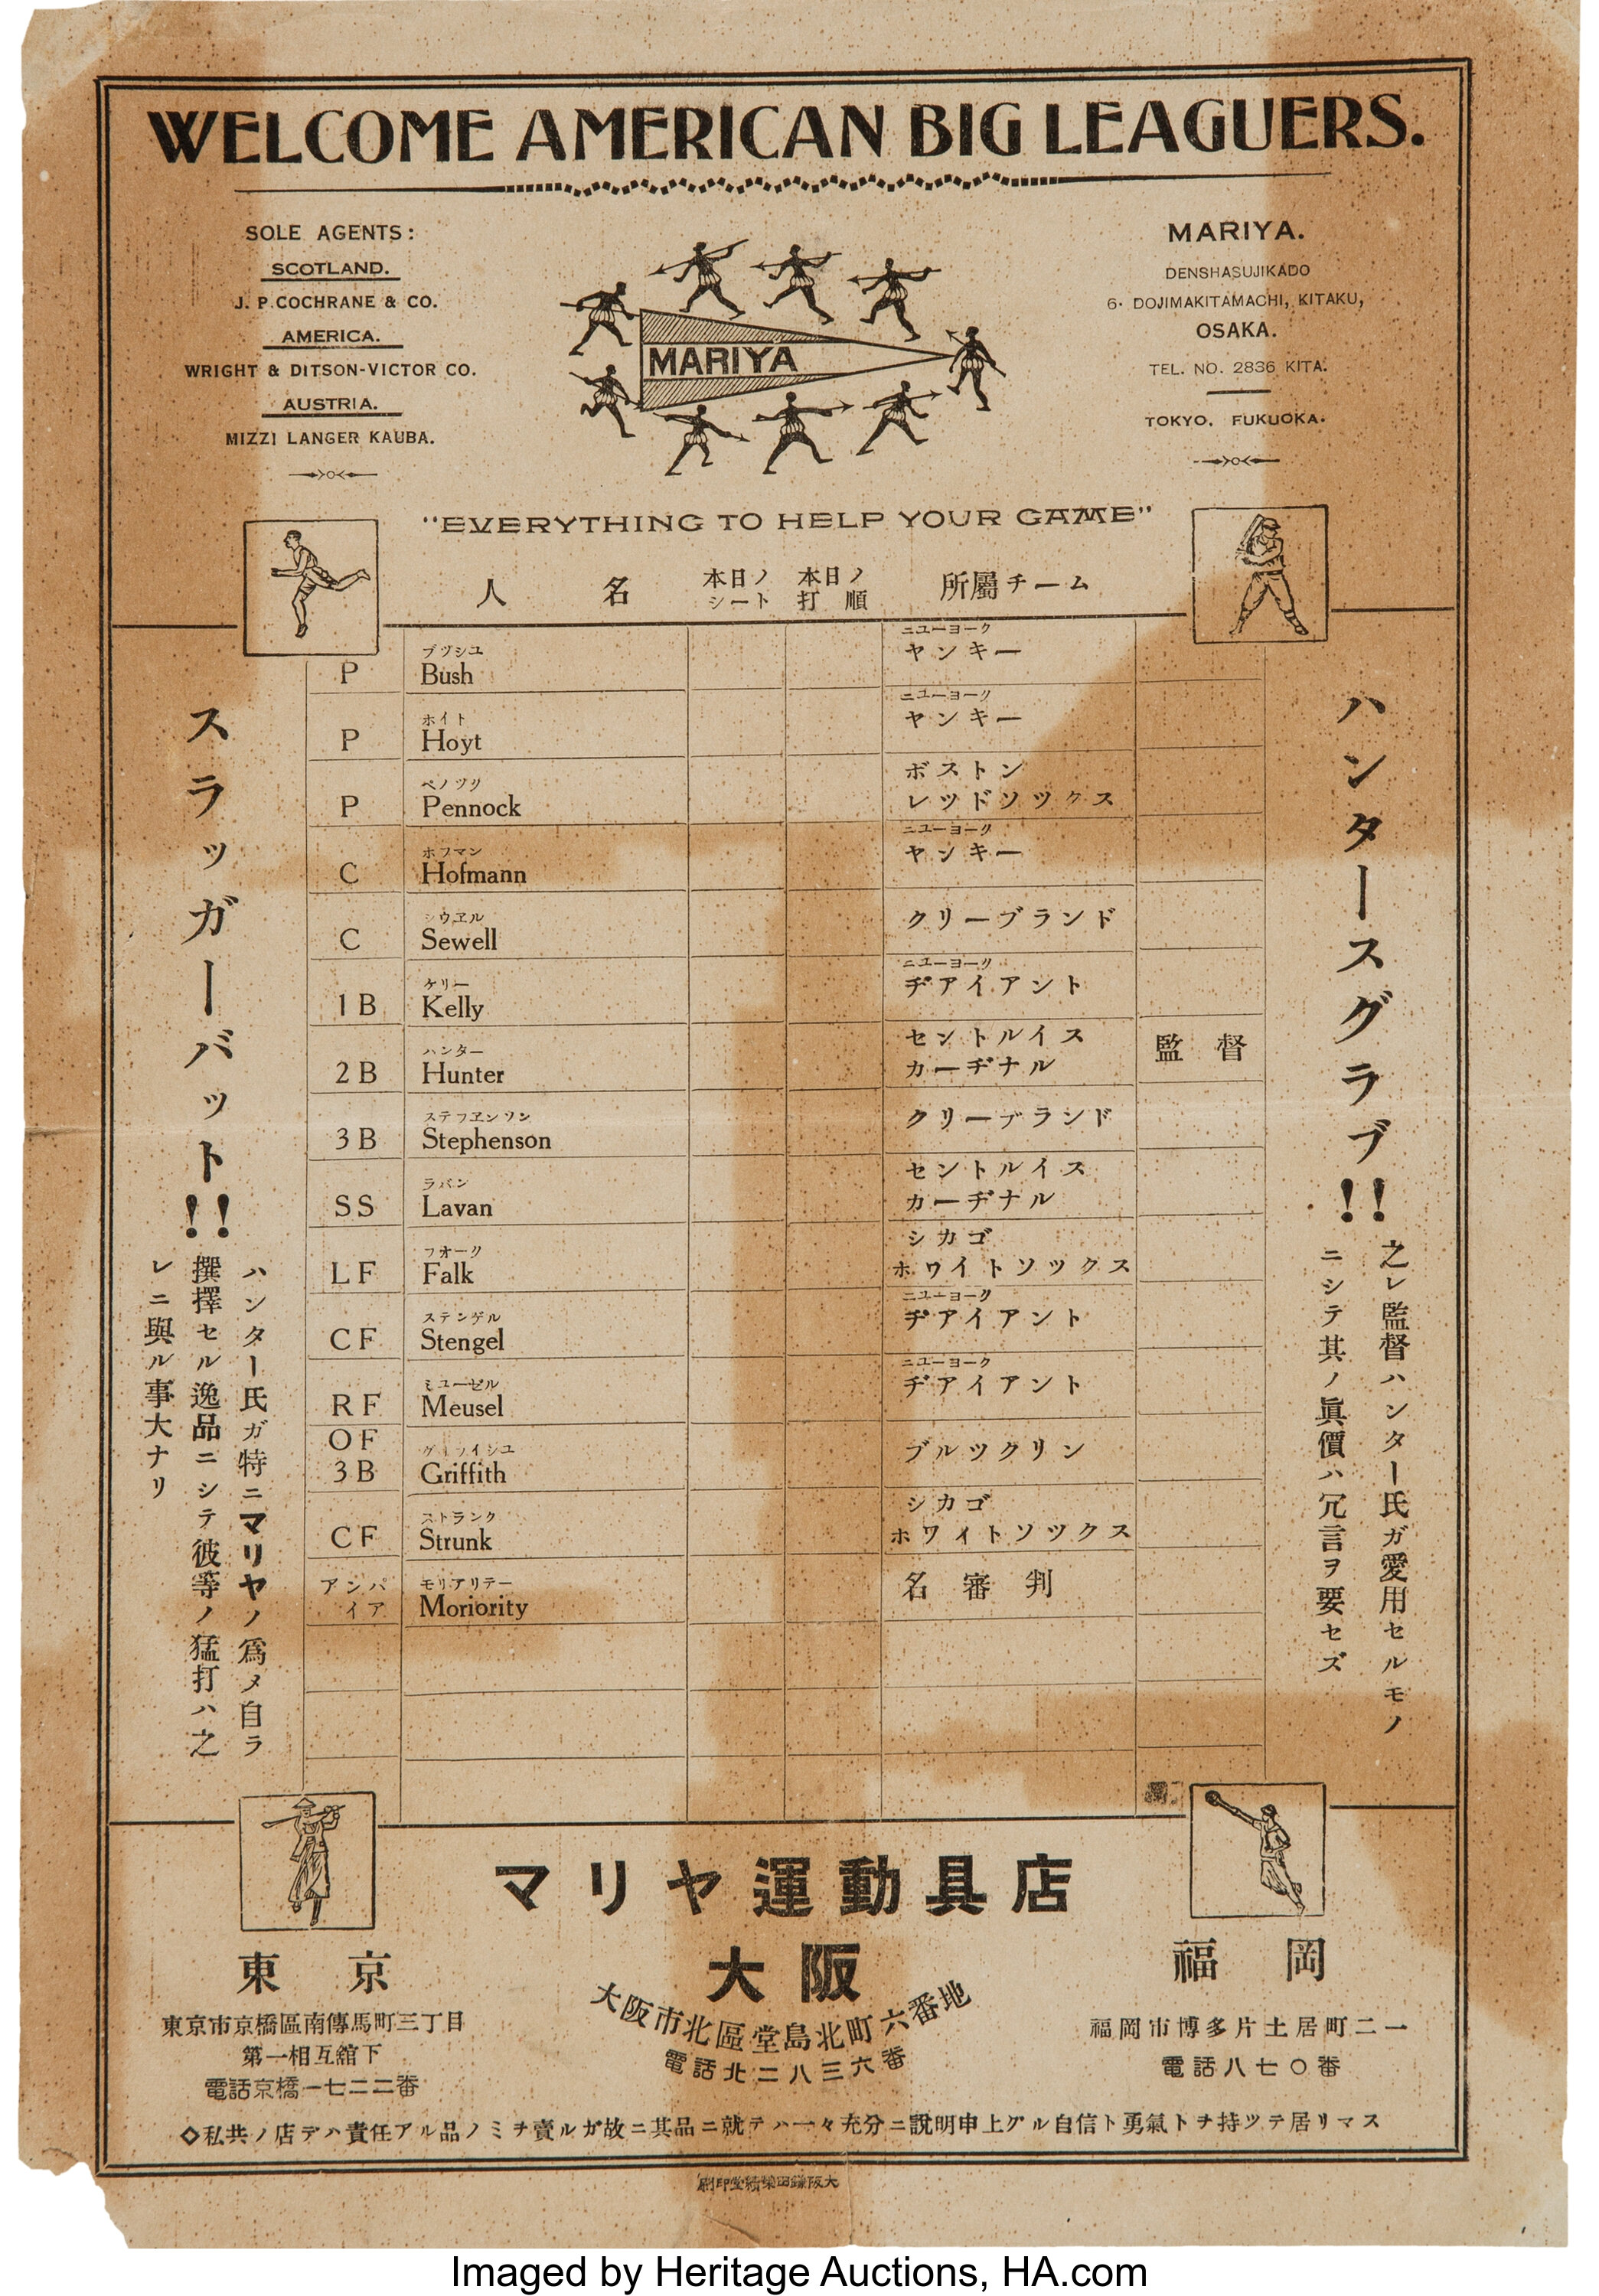 WELCOME AMERICAN BIG LEAGUERS.
SOLE AGENTS:
SCOTLAND.
J. P. COCHRANE & CO.
AMERICA.
WRIGHT & DITSON-VICTOR CO.
AUSTRIA.
MIZZI LANGER KAUBA.
MARIYA
MARIYA.
DENSHASUJIKADO
6. DOJIMAKITAMACHI, KITAKU,
OSAKA.
TEL. NO. 2836 KITA.
TOKYO. FUKUOKA.
"EVERYTHING TO HELP YOUR GAME"
人名 本日ノシート 本日ノ打順 所屬チーム
ハンタースグラブ!!
之レ監督ハンター氏ガ愛用セルモノ
ニシテ其ノ眞價ハ冗言ヲ要セズ
P ブツシユ Bush ニユーヨーク ヤンキー
P ホイト Hoyt ニユーヨーク ヤンキー
P ペノツク Pennock ボストン レツドソツクス
C ホフマン Hofmann ニユーヨーク ヤンキー
C シウヱル Sewell クリーブランド
1B ケリー Kelly ニユーヨーク ヂアイアント
2B ハンター Hunter セントルイス カーヂナル 監督
3B ステフヱンソン Stephenson クリーブランド
SS ラバン Lavan セントルイス カーヂナル
LF フオーク Falk シカゴ ホワイトソツクス
CF ステンゲル Stengel ニユーヨーク ヂアイアント
RF ミユーゼル Meusel ニユーヨーク ヂアイアント
OF 3B Griffith ブルツクリン
CF ストランク Strunk シカゴ ホワイトソツクス
アンパイア モリアリテー Moriority 名審判
スラッガーバット!!
ハンター氏ガ特ニマリヤノ爲メ自ラ
撰擇セル逸品ニシテ彼等ノ猛打ハ之
レニ與ル事大ナリ
マリヤ運動具店
東京
東京市京橋區南傳馬町三丁目
第一相互館下
電話京橋一七二二番
大阪
大阪市北區堂島北町六番地
電話北二八三六番
福岡
福岡市博多片土居町二一
電話八七〇番
◇私共ノ店デハ責任アル品ノミチ賣ルガ故ニ其品ニ就テハ一々充分ニ説明申上グル自信ト勇氣トチ持ツテ居リマス
Imaged by Heritage Auctions, HA.com